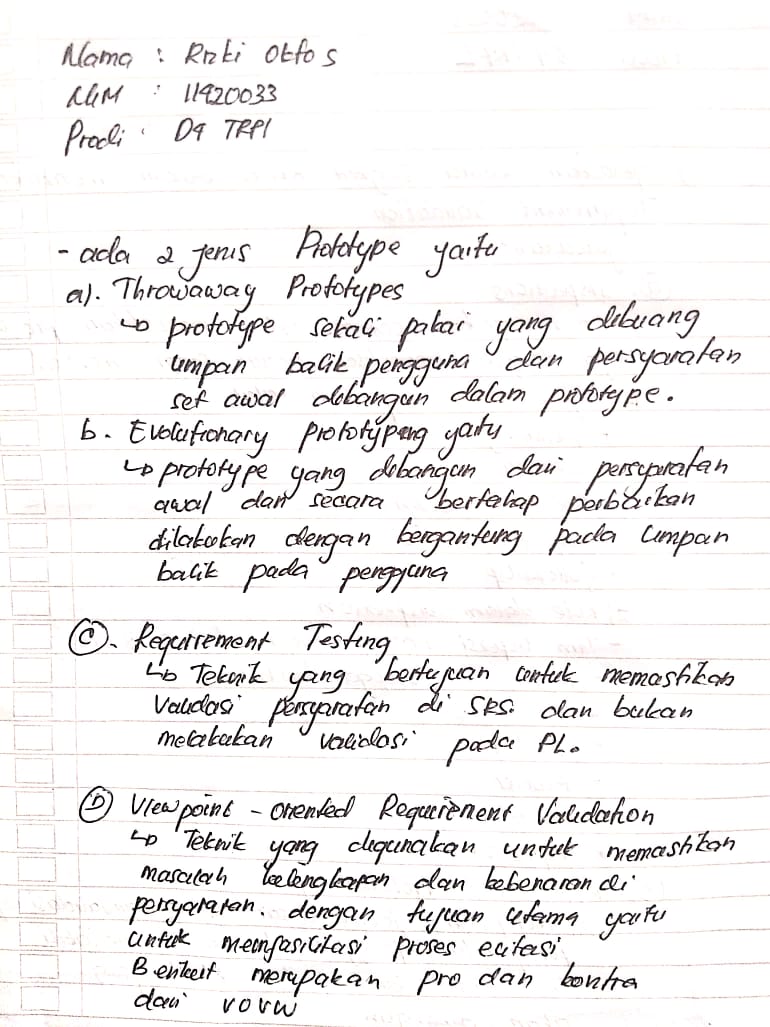 Nama : Rizki Oktfo s
NIM : 11920033
Prodi : D4 TRPL
- ada 2 jenis Prototype yaitu
a). Throwaway Prototypes
↳ prototype sekali pakai yang dibuang
umpan balik pengguna dan persyaratan
set awal dibangun dalam prototype.
b. Evolutionary prototyping yaitu
↳ prototype yang dibangun dari persyaratan
awal dan secara bertahap perbaikan
dilakukan dengan bergantung pada umpan
balik pada pengguna
C. Requirement Testing
↳ Teknik yang bertujuan untuk memastikan
Validasi persyaratan di SRS. dan bukan
melakukan validasi pada PL.
D Viewpoint - Oriented Requirement Validation
↳ Teknik yang digunakan untuk memastikan
masalah kelengkapan dan kebenaran di
persyaratan. dengan tujuan utama yaitu
untuk memfasilitasi proses elitasi
Berikut merupakan pro dan kontra
dari VORV